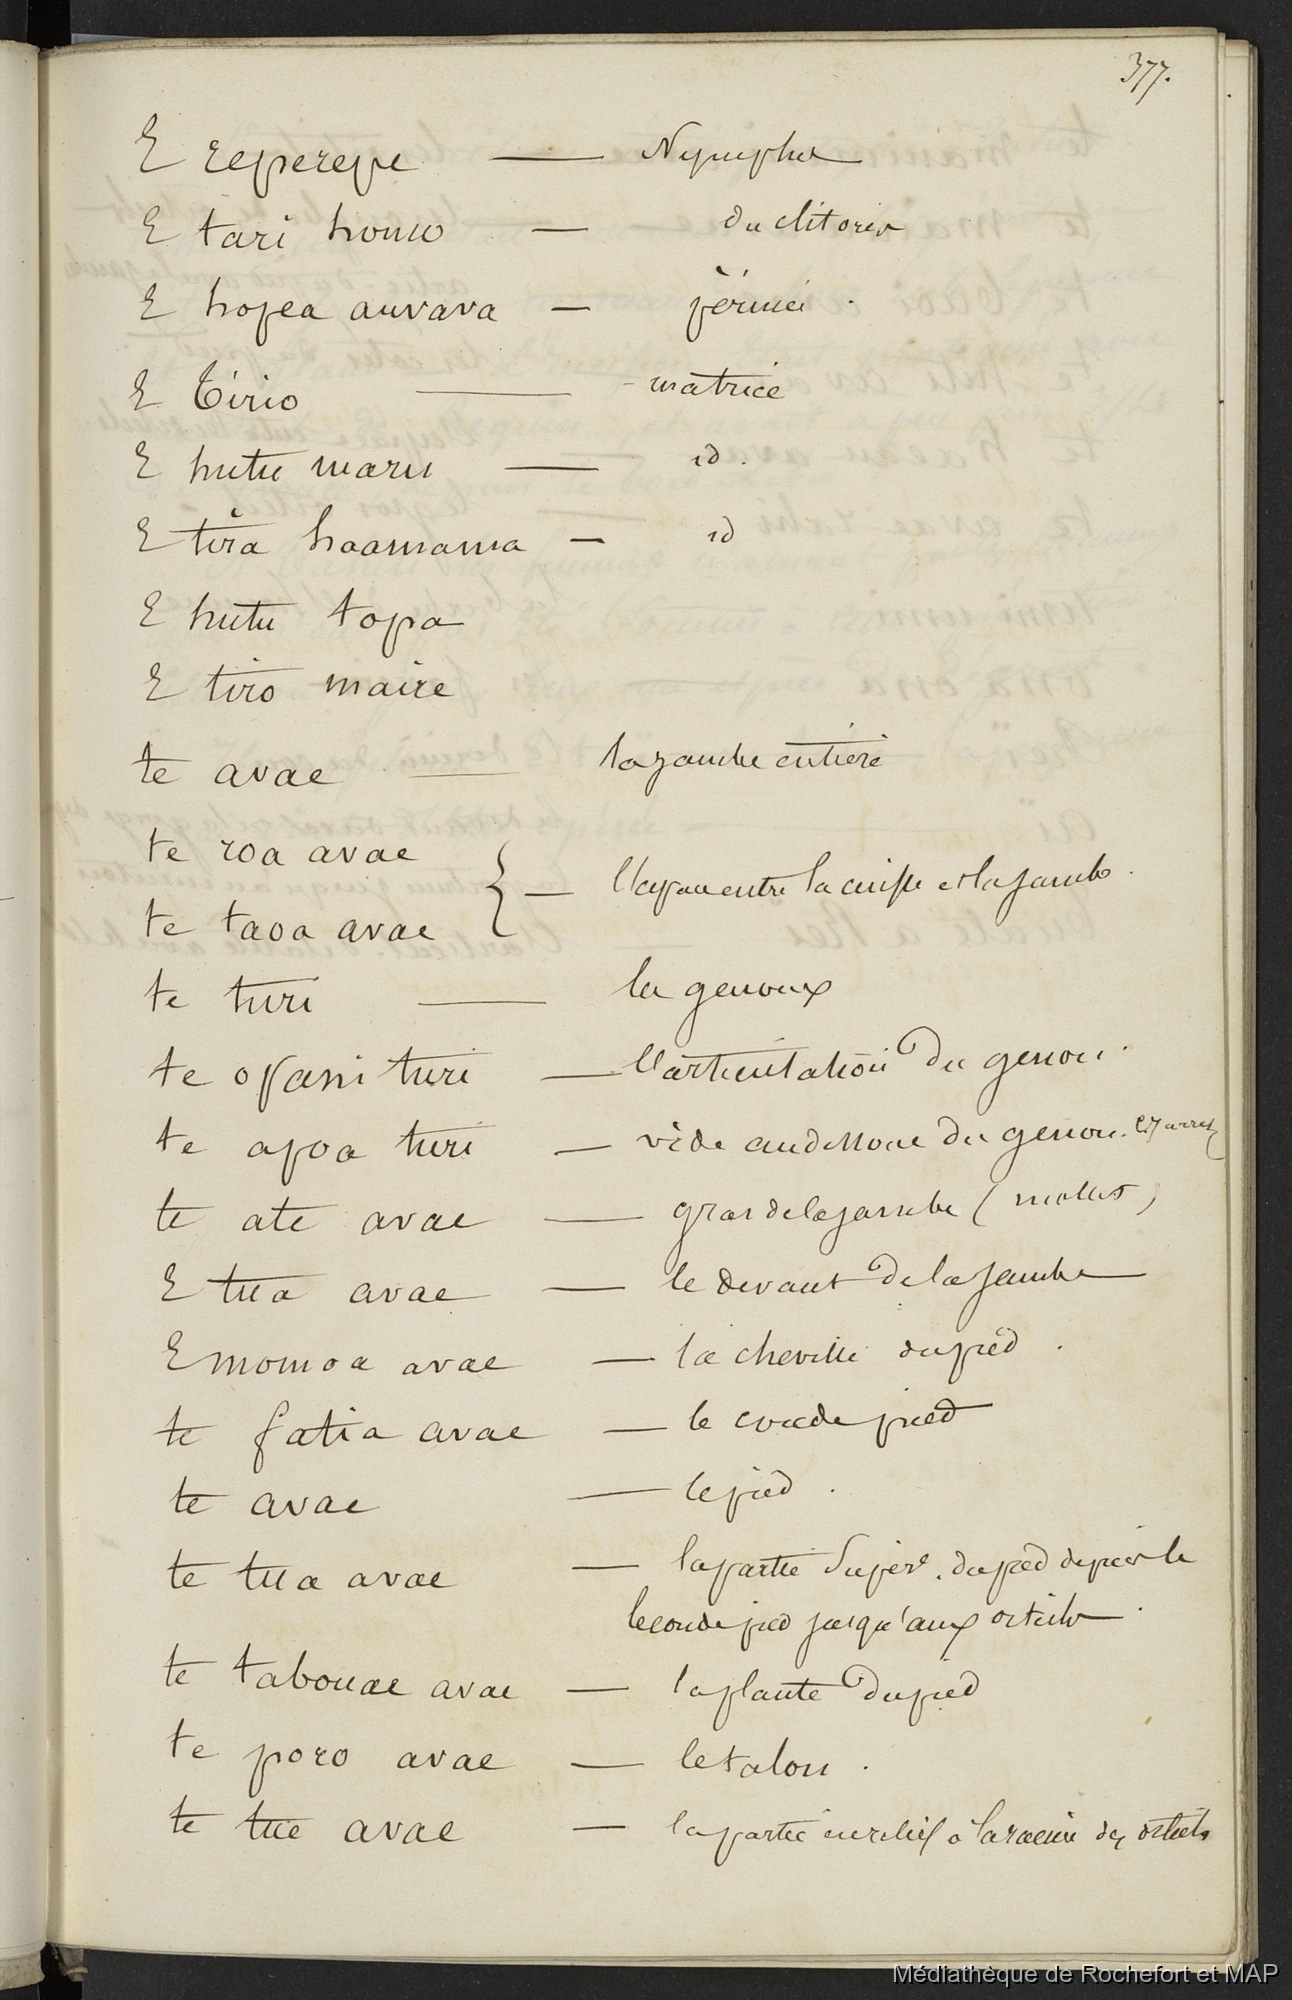 377.
E reperepe — Nymphes
E tari houo — du clitoris
E hopea auvava — périné.
E tirio — matrice
E hutu maru — id.
E tira haamama — id
E hutu topa
E tiro maire
te avae — la jambe entière
te roa avae
te taoa avae } — l'espace entre la cuisse et la jambe.
te turi — le genoux
te opani turi — l'articulation du genou.
te apoa turi — vide au dessous du genou. le jarret
te ate avae — gras de la jambe (mollet)
E tua avae — le devant de la jambe
E momoa avae — la cheville du pied.
te fatia avae — le cou de pied
te avae — le pied.
te tua avae — la partie supérre. du pied depuis le
le cou de pied jusqu'aux orteils.
te tabouae avae — la plante du pied
te poro avae — le talon.
te tue avae — la partie en relief à la racine des orteils
Médiathèque de Rochefort et MAP